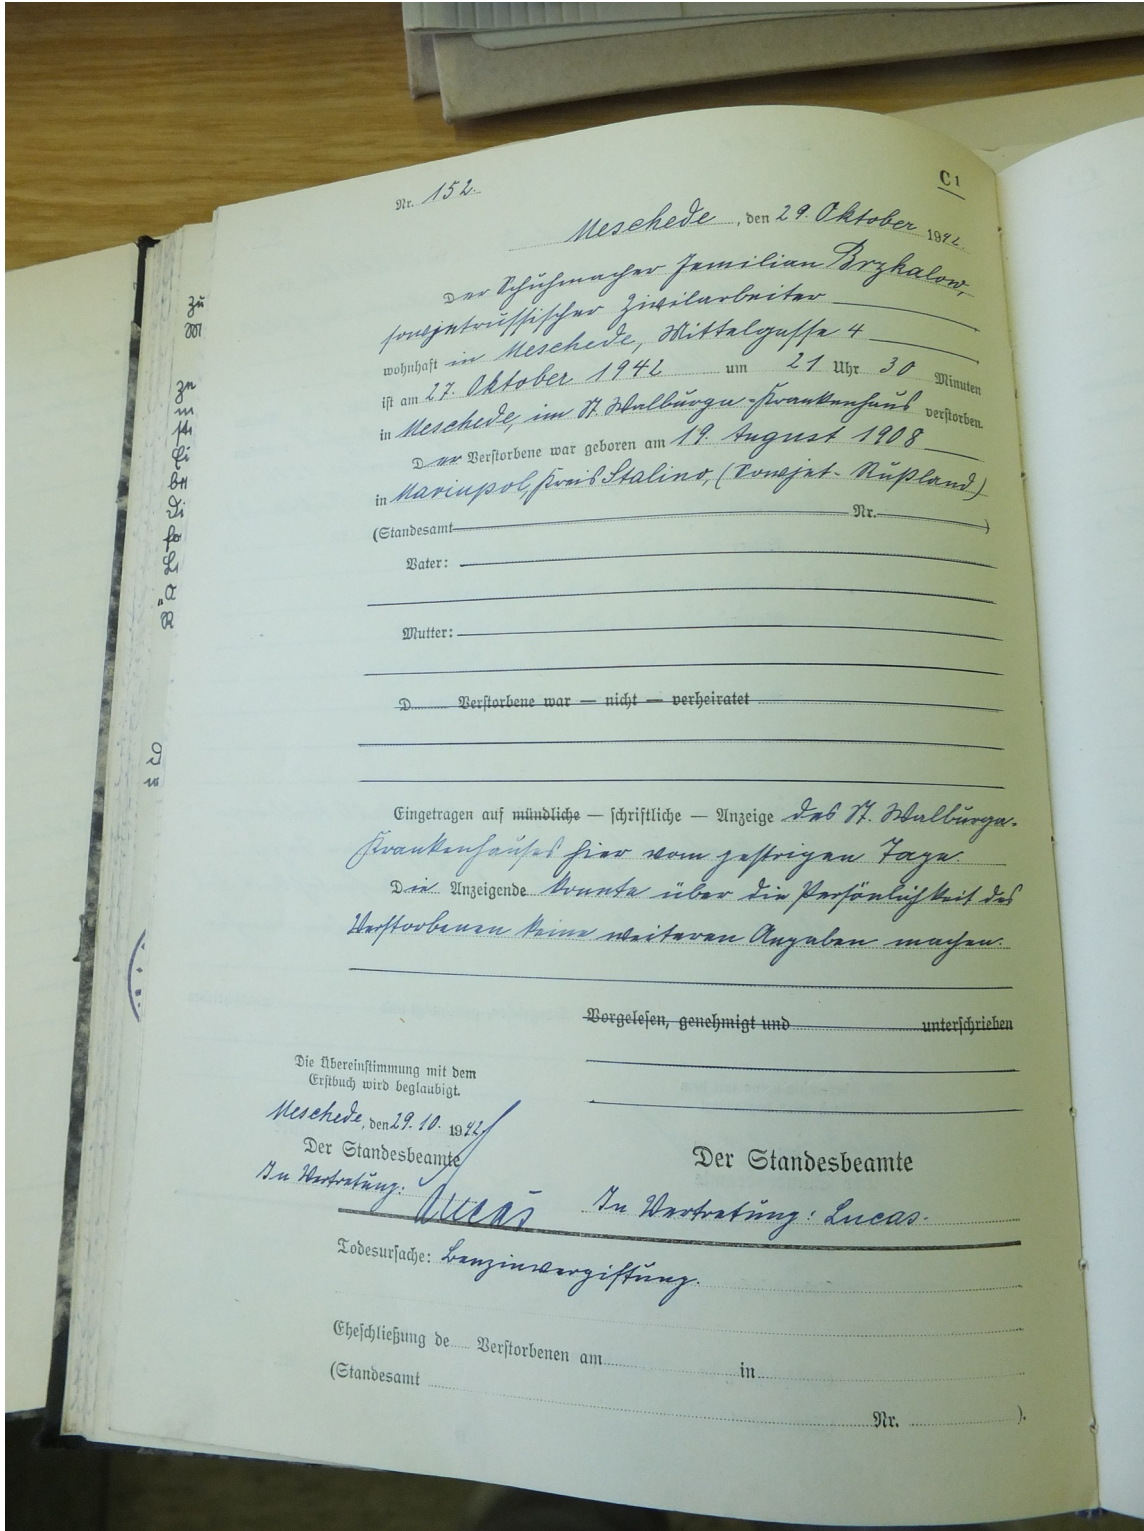 C1
Nr. 152.
Meschede, den 29. Oktober 1942.
Der Schuhmacher Jemilian Brzkalow,
sowjetrussischer Zivilarbeiter
wohnhaft in Meschede, Mittelgasse 4
ist am 27. Oktober 1942 um 21 Uhr 30 Minuten
in Meschede, im St. Walburga-Krankenhaus verstorben.
Der Verstorbene war geboren am 19. August 1908
in Mariupol, Kreis Stalino, (Sowjet-Rußland)
(Standesamt Nr. )
Vater:
Mutter:
D Verstorbene war — nicht — verheiratet
Eingetragen auf mündliche — schriftliche — Anzeige des St. Walburga-
Krankenhauses hier vom gestrigen Tage.
Die Anzeigende konnte über die Persönlichkeit des
Verstorbenen keine weiteren Angaben machen.
Vorgelesen, genehmigt und unterschrieben
Die Übereinstimmung mit dem
Erstbuch wird beglaubigt.
Meschede, den 29. 10. 1942
Der Standesbeamte
In Vertretung:
Lucas
Der Standesbeamte
In Vertretung: Lucas.
Todesursache: Benzinvergiftung.
Eheschließung de Verstorbenen am in
(Standesamt Nr. ).